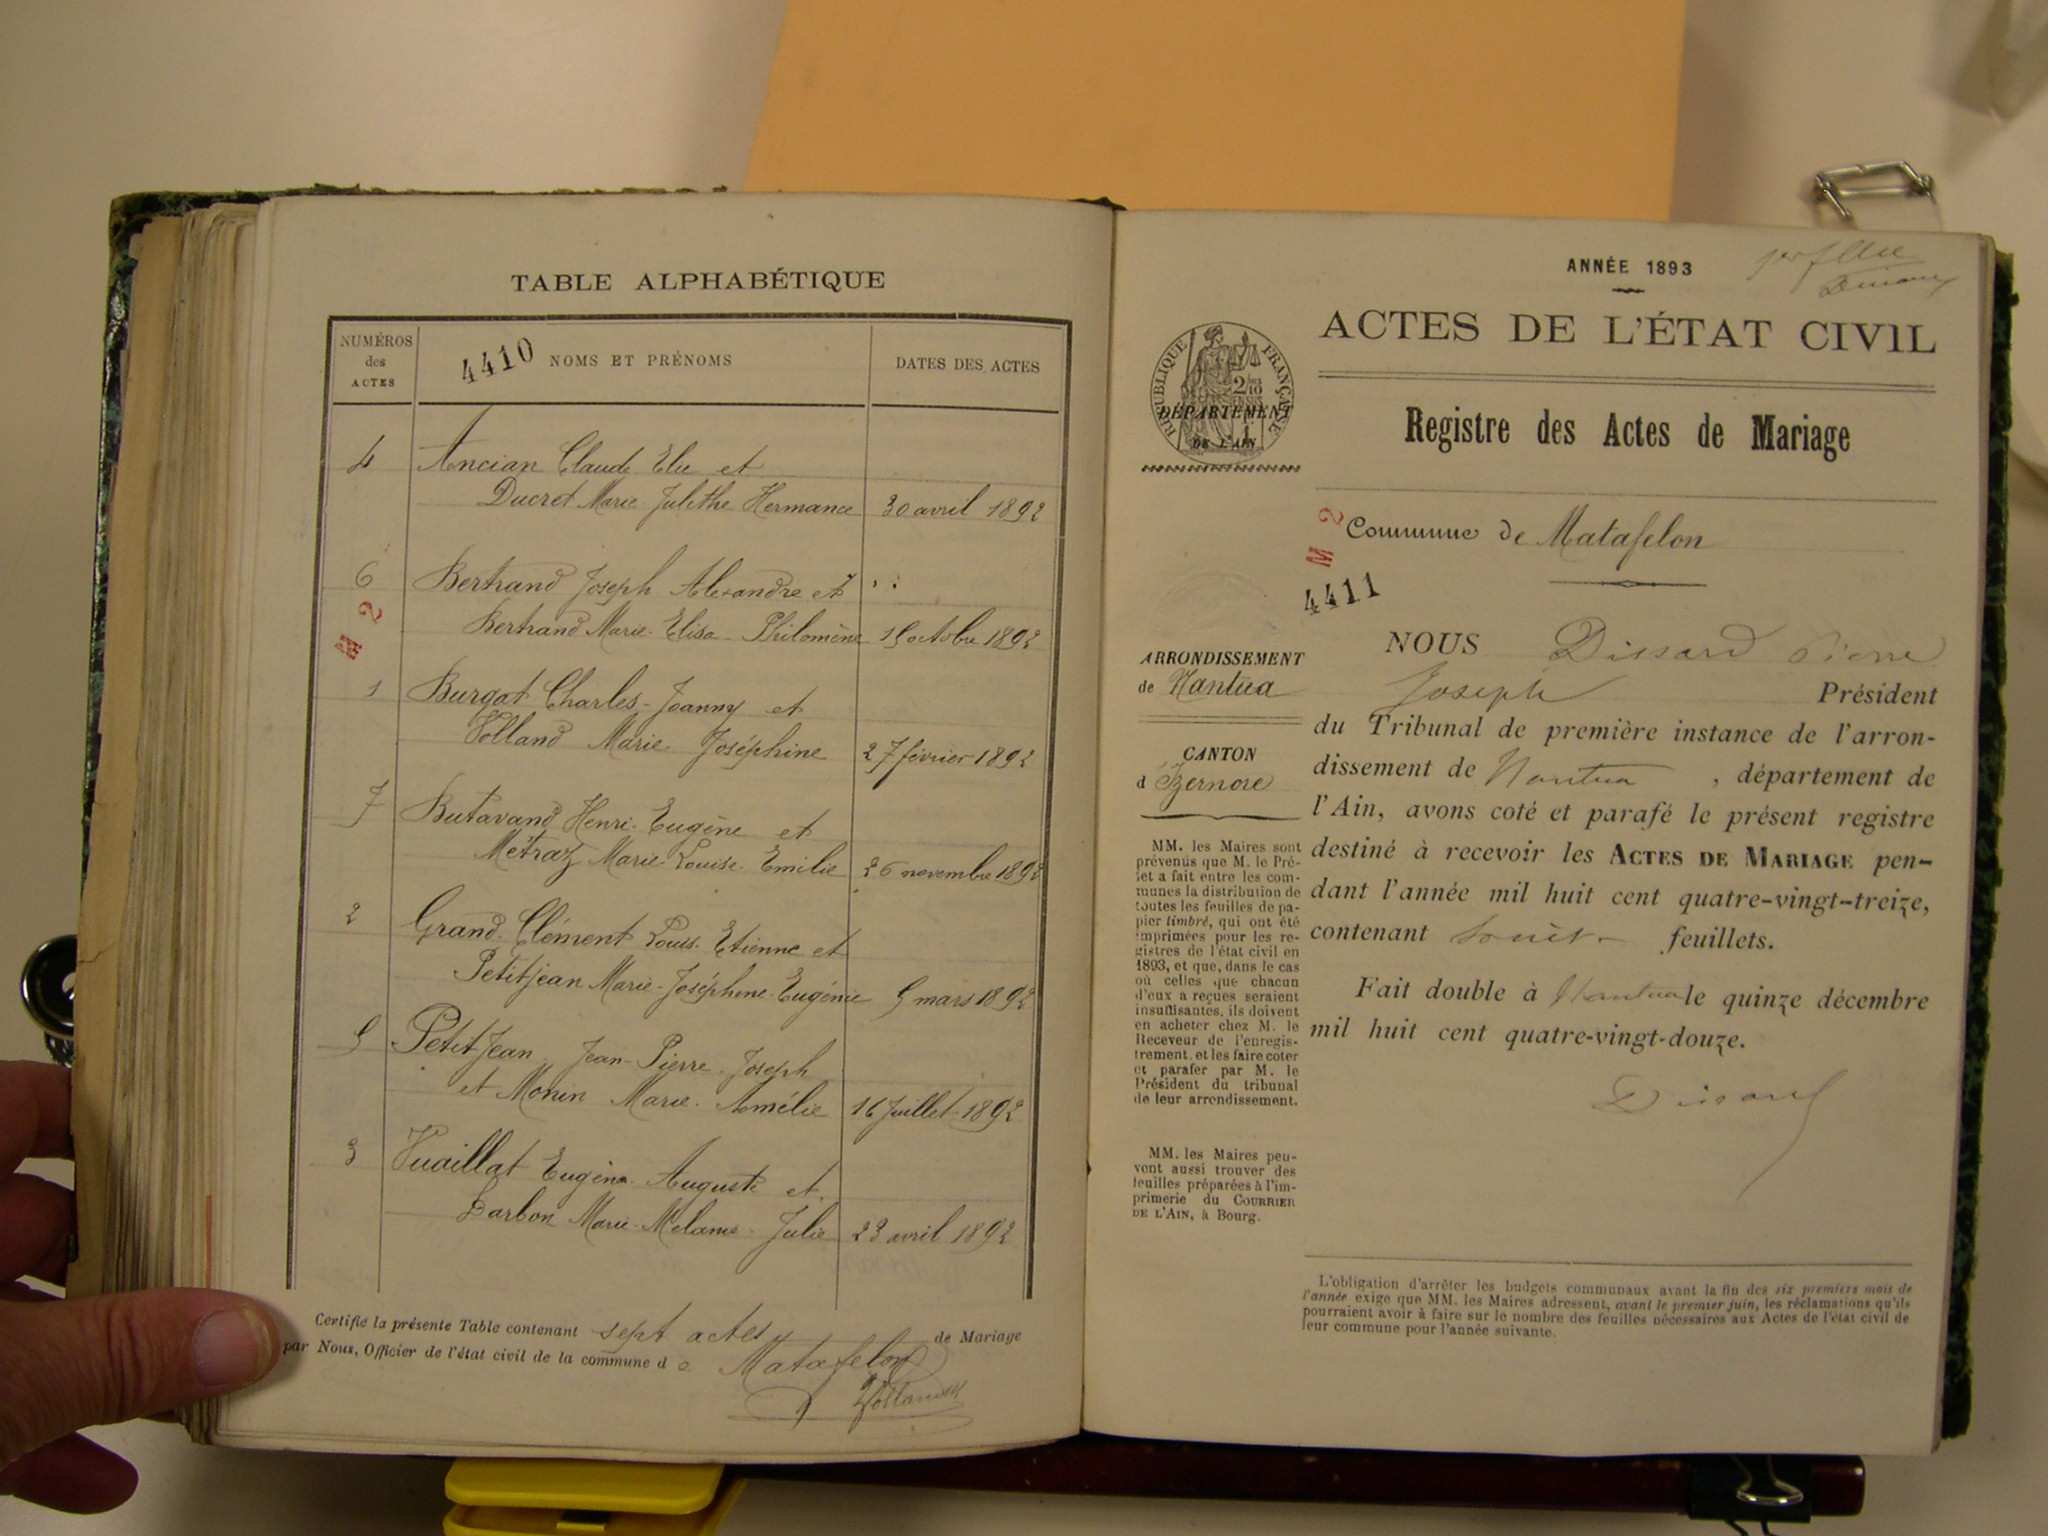 TABLE ALPHABÉTIQUE
NUMÉROS
des
ACTES
4410
NOMS ET PRÉNOMS
DATES DES ACTES
4 Ancian Claude Elie et
Ducret Marie Julithe Hermance 30 avril 1892
6 Bertrand Joseph Alexandre et
Bertrand Marie Elisa Philomène 15 octobre 1892
M 2
1 Burgat Charles-Joanny et
Volland Marie Joséphine 27 février 1892
7 Butavand Henri Eugène et
Métraz Marie Louise Emilie 26 novembre 1892
2 Grand Clément Louis Etienne et
Petitjean Marie-Joséphine Eugénie 5 mars 1892
5 Petitjean Jean-Pierre Joseph
et Monin Marie Amélie 16 Juillet 1892
3 Vuaillat Eugène Auguste et
Darbon Marie Mélanie Julie 23 avril 1892
Certifie la présente Table contenant sept actes de Mariage
par Nous, Officier de l'état civil de la commune de Matafelon
Volland
ANNÉE 1893
ACTES DE L'ÉTAT CIVIL
RÉPUBLIQUE FRANÇAISE
DÉPARTEMENT
DE L'AIN
Registre des Actes de Mariage
M 2
Commune de Matafelon
4411
ARRONDISSEMENT
de Nantua
CANTON
d'Izernore
MM. les Maires sont
prévenus que M. le Pré-
fet a fait entre les com-
munes la distribution de
toutes les feuilles de pa-
pier timbré, qui ont été
imprimées pour les re-
gistres de l'état civil en
1893, et que, dans le cas
où celles que chacun
d'eux a reçues seraient
insuffisantes, ils doivent
en acheter chez M. le
Receveur de l'enregis-
trement, et les faire coter
et parafer par M. le
Président du tribunal
de leur arrondissement.
MM. les Maires peu-
vent aussi trouver des
feuilles préparées à l'im-
primerie du COURRIER
DE L'AIN, à Bourg.
NOUS Dissard Pierre
Joseph Président
du Tribunal de première instance de l'arron-
dissement de Nantua, département de
l'Ain, avons coté et parafé le présent registre
destiné à recevoir les ACTES DE MARIAGE pen-
dant l'année mil huit cent quatre-vingt-treize,
contenant feuillets.
Fait double à Nantua le quinze décembre
mil huit cent quatre-vingt-douze.
Dissard
L'obligation d'arrêter les budgets communaux avant la fin des six premiers mois de
l'année exige que MM. les Maires adressent, avant le premier juin, les réclamations qu'ils
pourraient avoir à faire sur le nombre des feuilles nécessaires aux Actes de l'état civil de
leur commune pour l'année suivante.